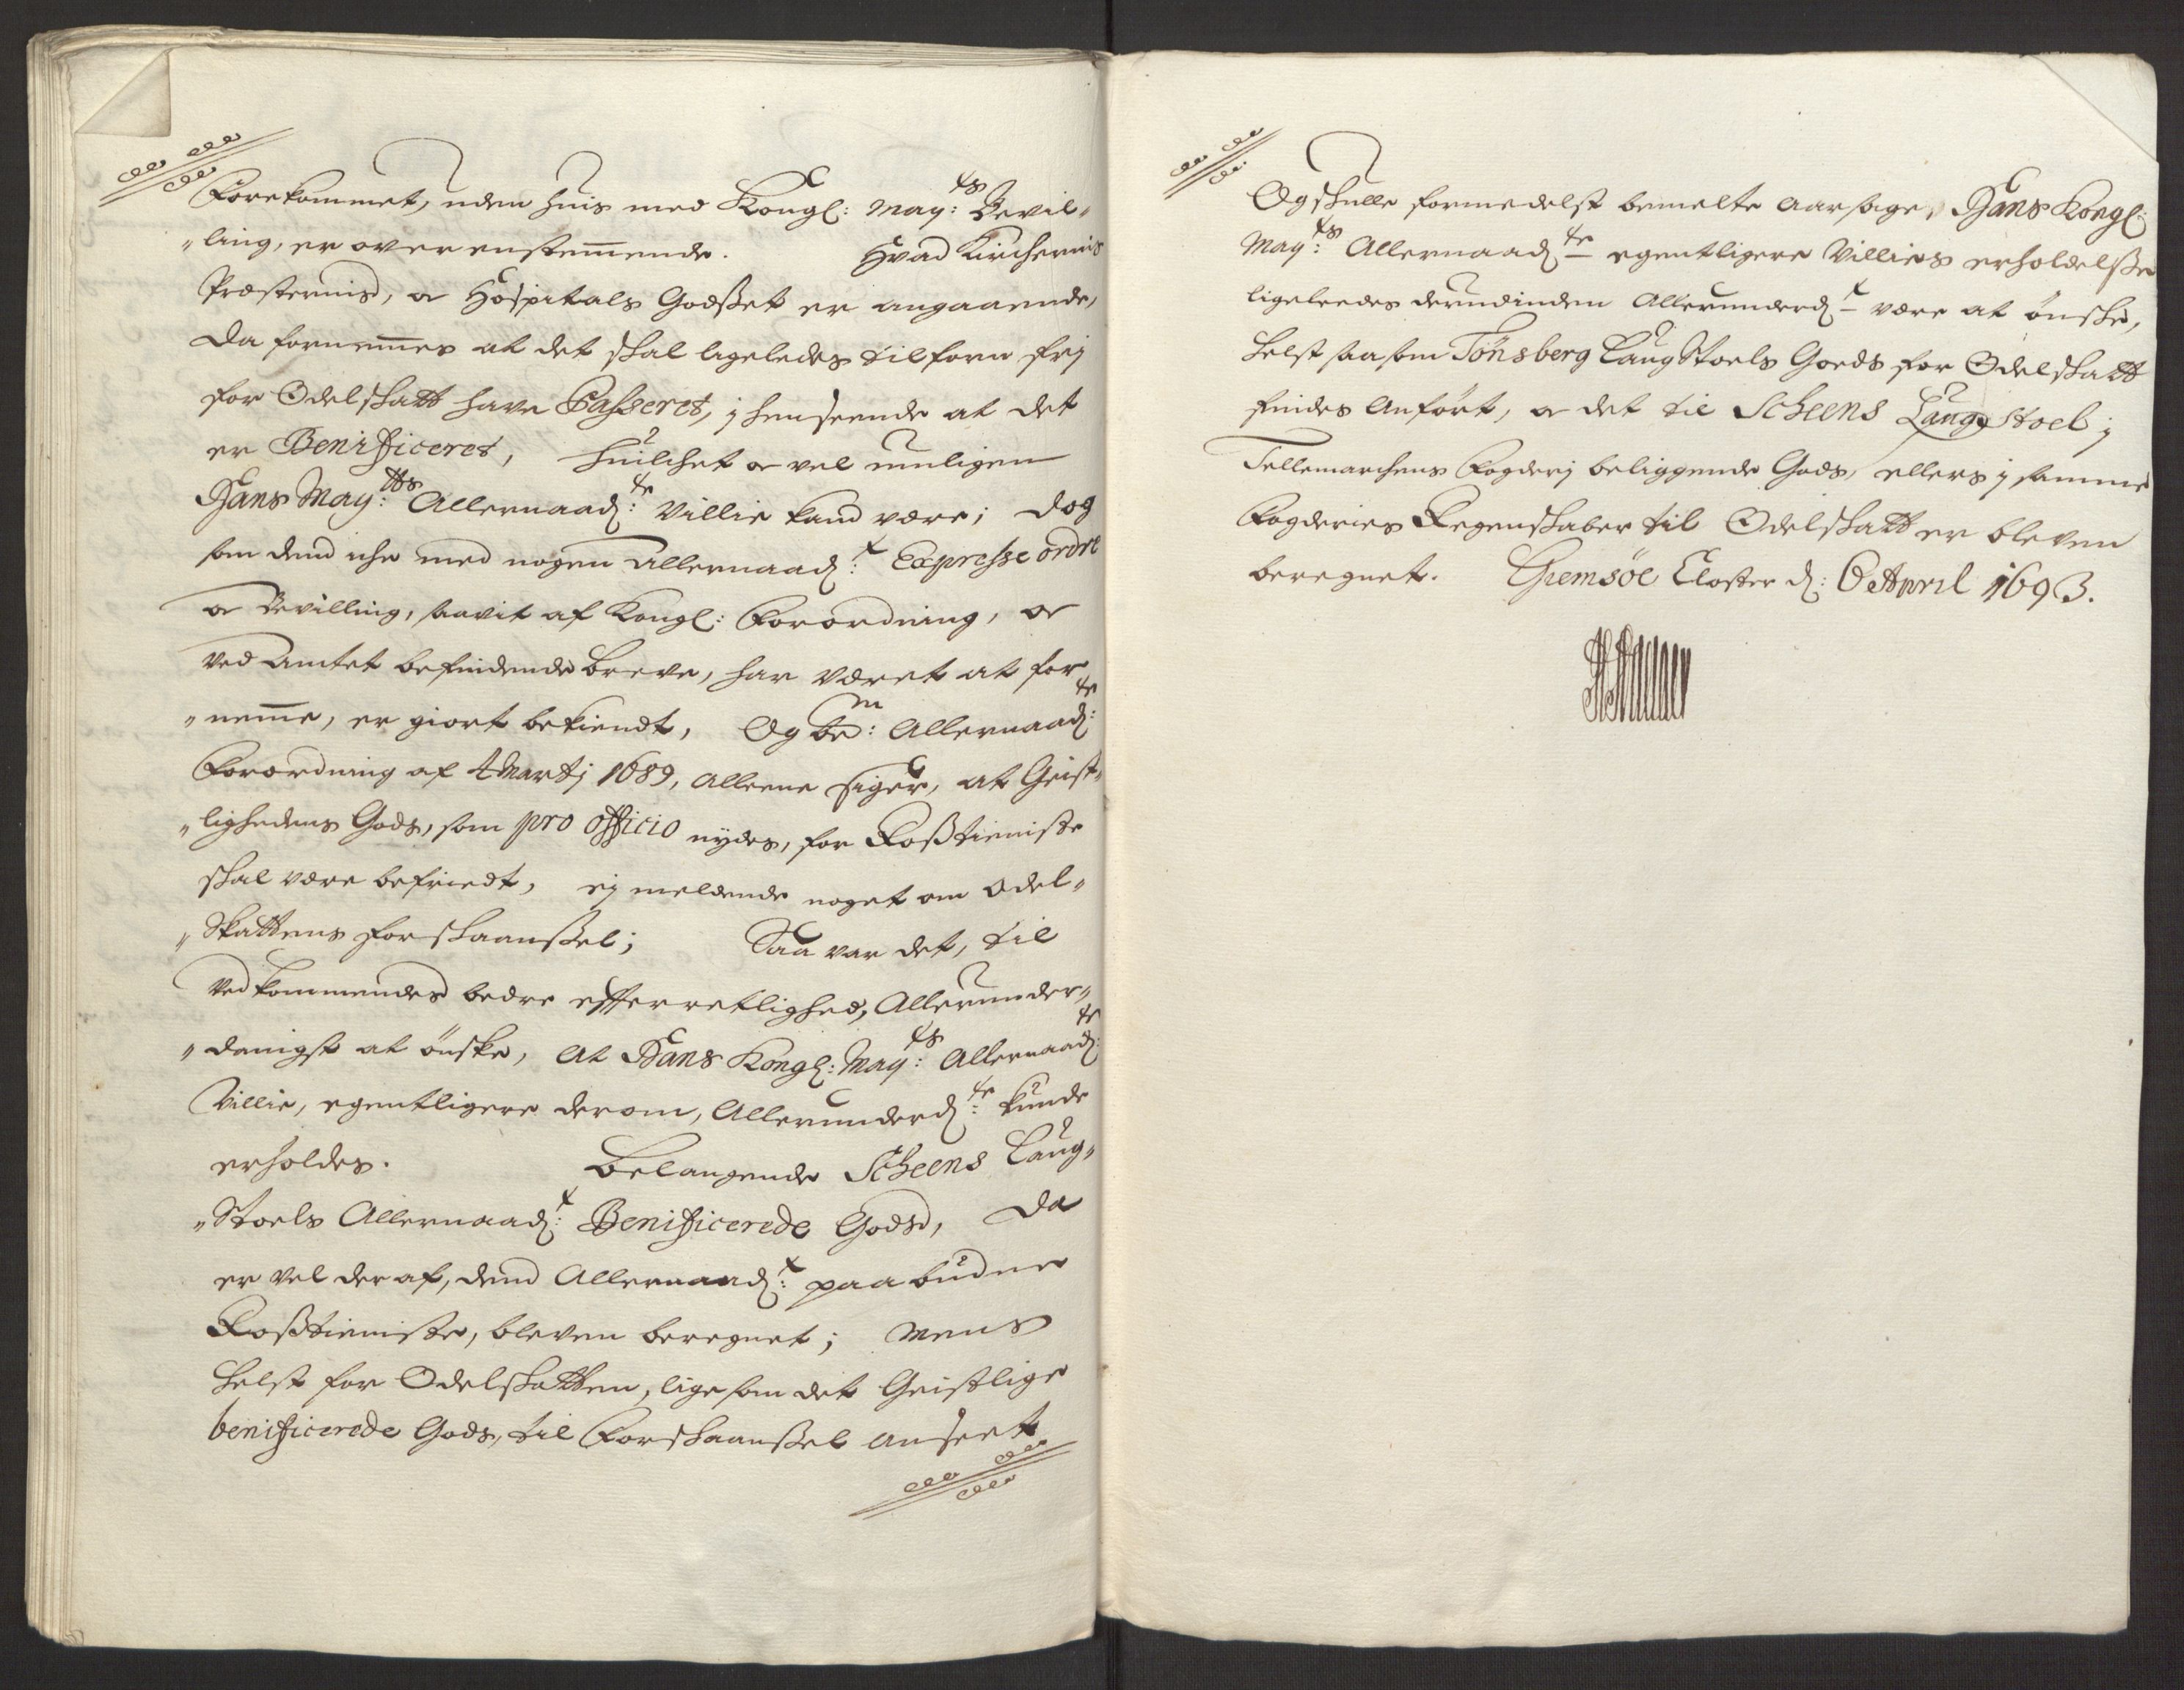 Forekommet, uden huis med Kongl: May:ts Bevil„
„ling, er overenstem̄ende. Hvad Kirchernis
Præsternis, oc Hospitals Godset er angaaende,
da fornem̄es at det skal ligeledes tilforn frj
for Odelskatt have Passeret, j henseende at det
er Benificeret, huilchet oc vel muligen
Hans May:tts Allernaad:te Villie kand være; dog
som dend iche med nogen allernaad:t Expresse ordre
oc Bevilling, saavit af Kongl: Forordning, oc
ved Amtet befindende breve, har været at for
„nem̄e, er giort bekiendt, Og be:m Allernaad:te
Forordning af 4 Martj 1689, alleene siger, at Geist„
„lighedens Gods, som pro officio nydes, for Rosstieniste
skal være befriedt, ej meldende noget om Odel„
„Skattens forskaansel; Saa var det, til
vedkommendes bedre efferretlighed, Allerunder„
„danigst at ønske, at Hans Kongl: May:ts Allernaad:te
Villie, egentligere derom, Allerunderd:te kunde
erholdes. Belangende Scheens Laug„
„Stoels Allernaad:t Benificerede Gods, Da
er vel der af, dend Allernaad:t paabudne
Rosstieniste, bleven beregnet; Mens
helst for Odelskatten, lige som det Geistlige
benificerede Gods, til Forskaansel anseet
Og skulle formedelst bemelte aarsage, Hans Kongl:
May:ts Allernaad:te egentligere Villies erholdelse
ligeleedes derudinden Allerunderd:t være at ønske,
helst saasom Tönsberg LaugStoels Goeds for Odelskatt
findes anført, oc det til Scheens Laugstoel j
Tellemarchens Fogderj beliggende Gods, ellers j samme
Fogderies Regenskaber til Odelskatt er bleven
beregnet. Giemsöe Closter d: 6 April 1693.